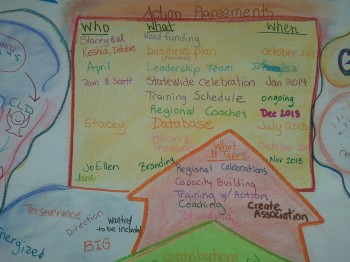 Action Agreements
Who What When
Stacey Bal Need funding
Keshia, Debbie business plan October 201
April Leadership Team
Pam & Scott Statewide Celebration Jan 2014
Training Schedule ongoing
Regional Coaches Dec 2013
Stacey Database July 2013
Policies & October 201
What
It Takes
JoEllen Branding Nov 2013
June
Regional Celebrations
Capacity Building
Training w/ Action
Coaching
Create
Association
Perseverance
Direction
Wanting
to be included
BIG
Energized
Contributions